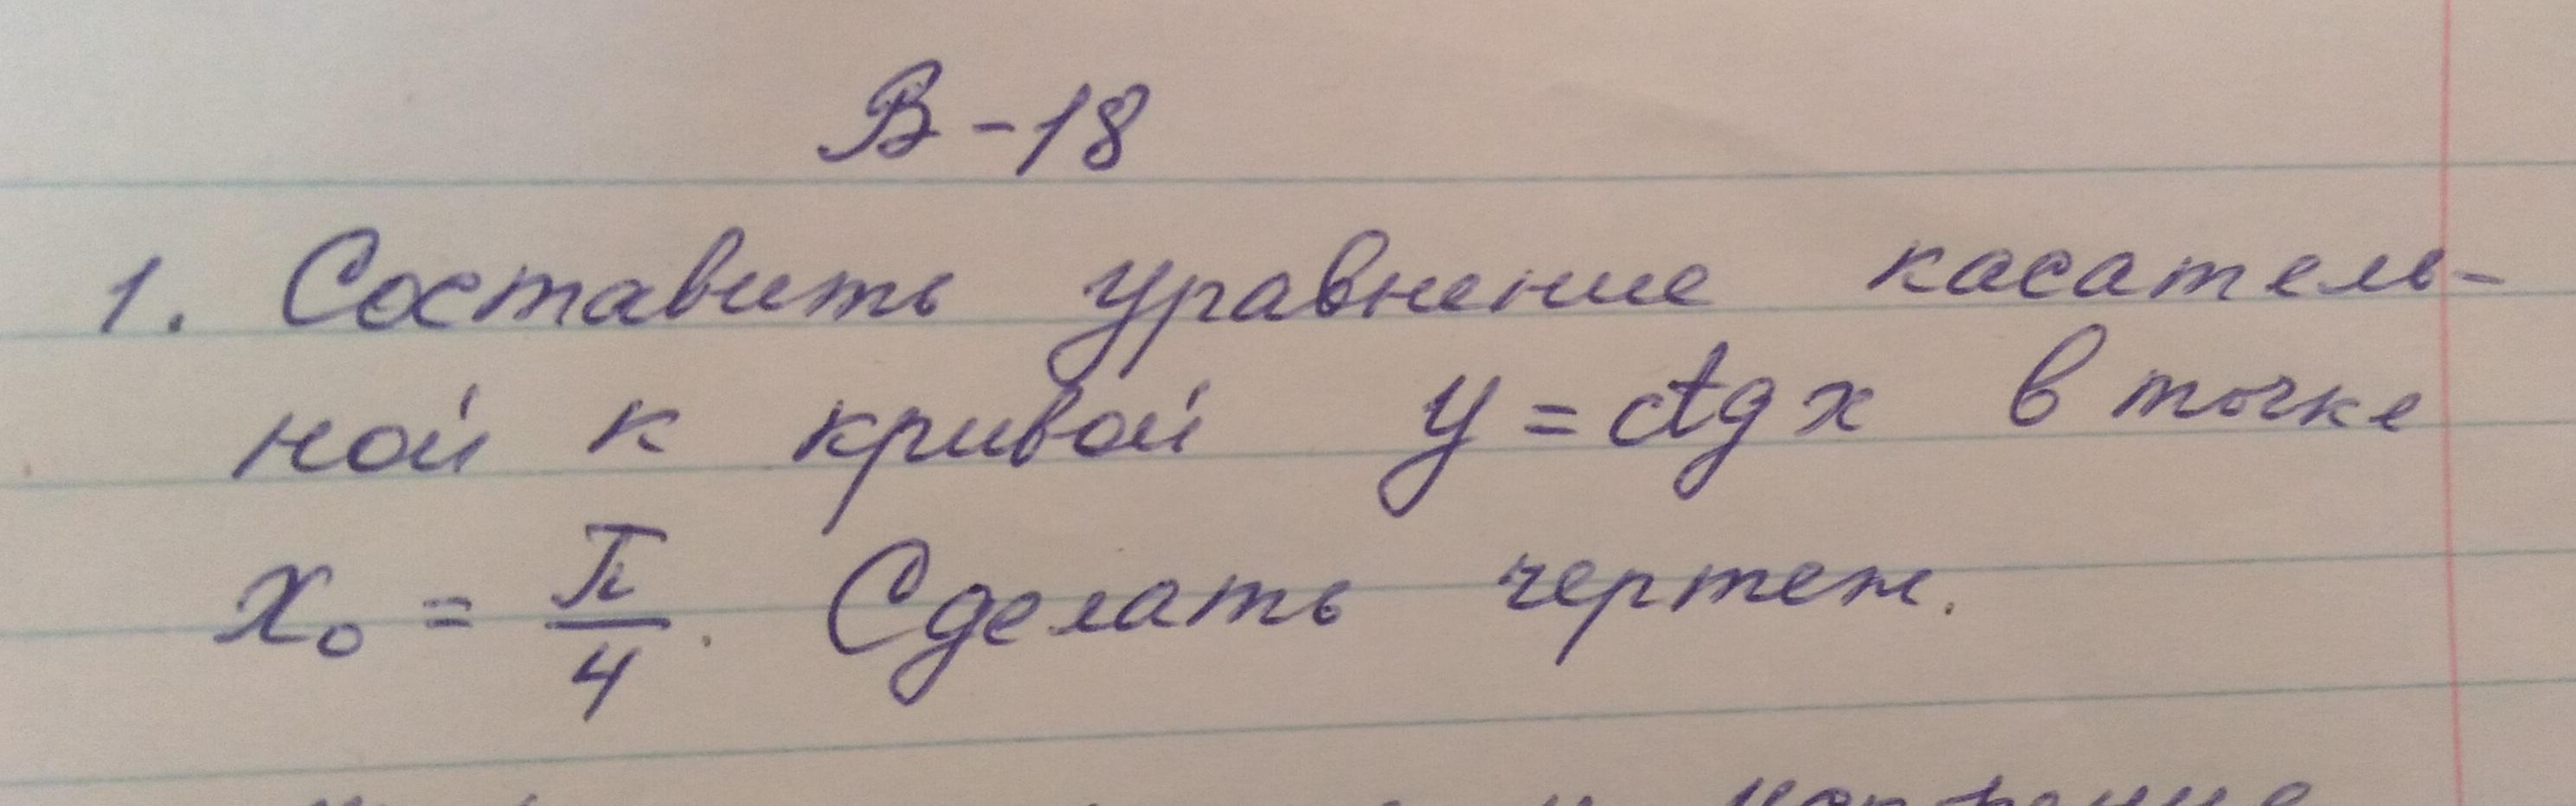 В-18
1. Составить уравнение касатель-
ной к кривой y = ctg x в точке
x₀ = π/4. Сделать чертеж.